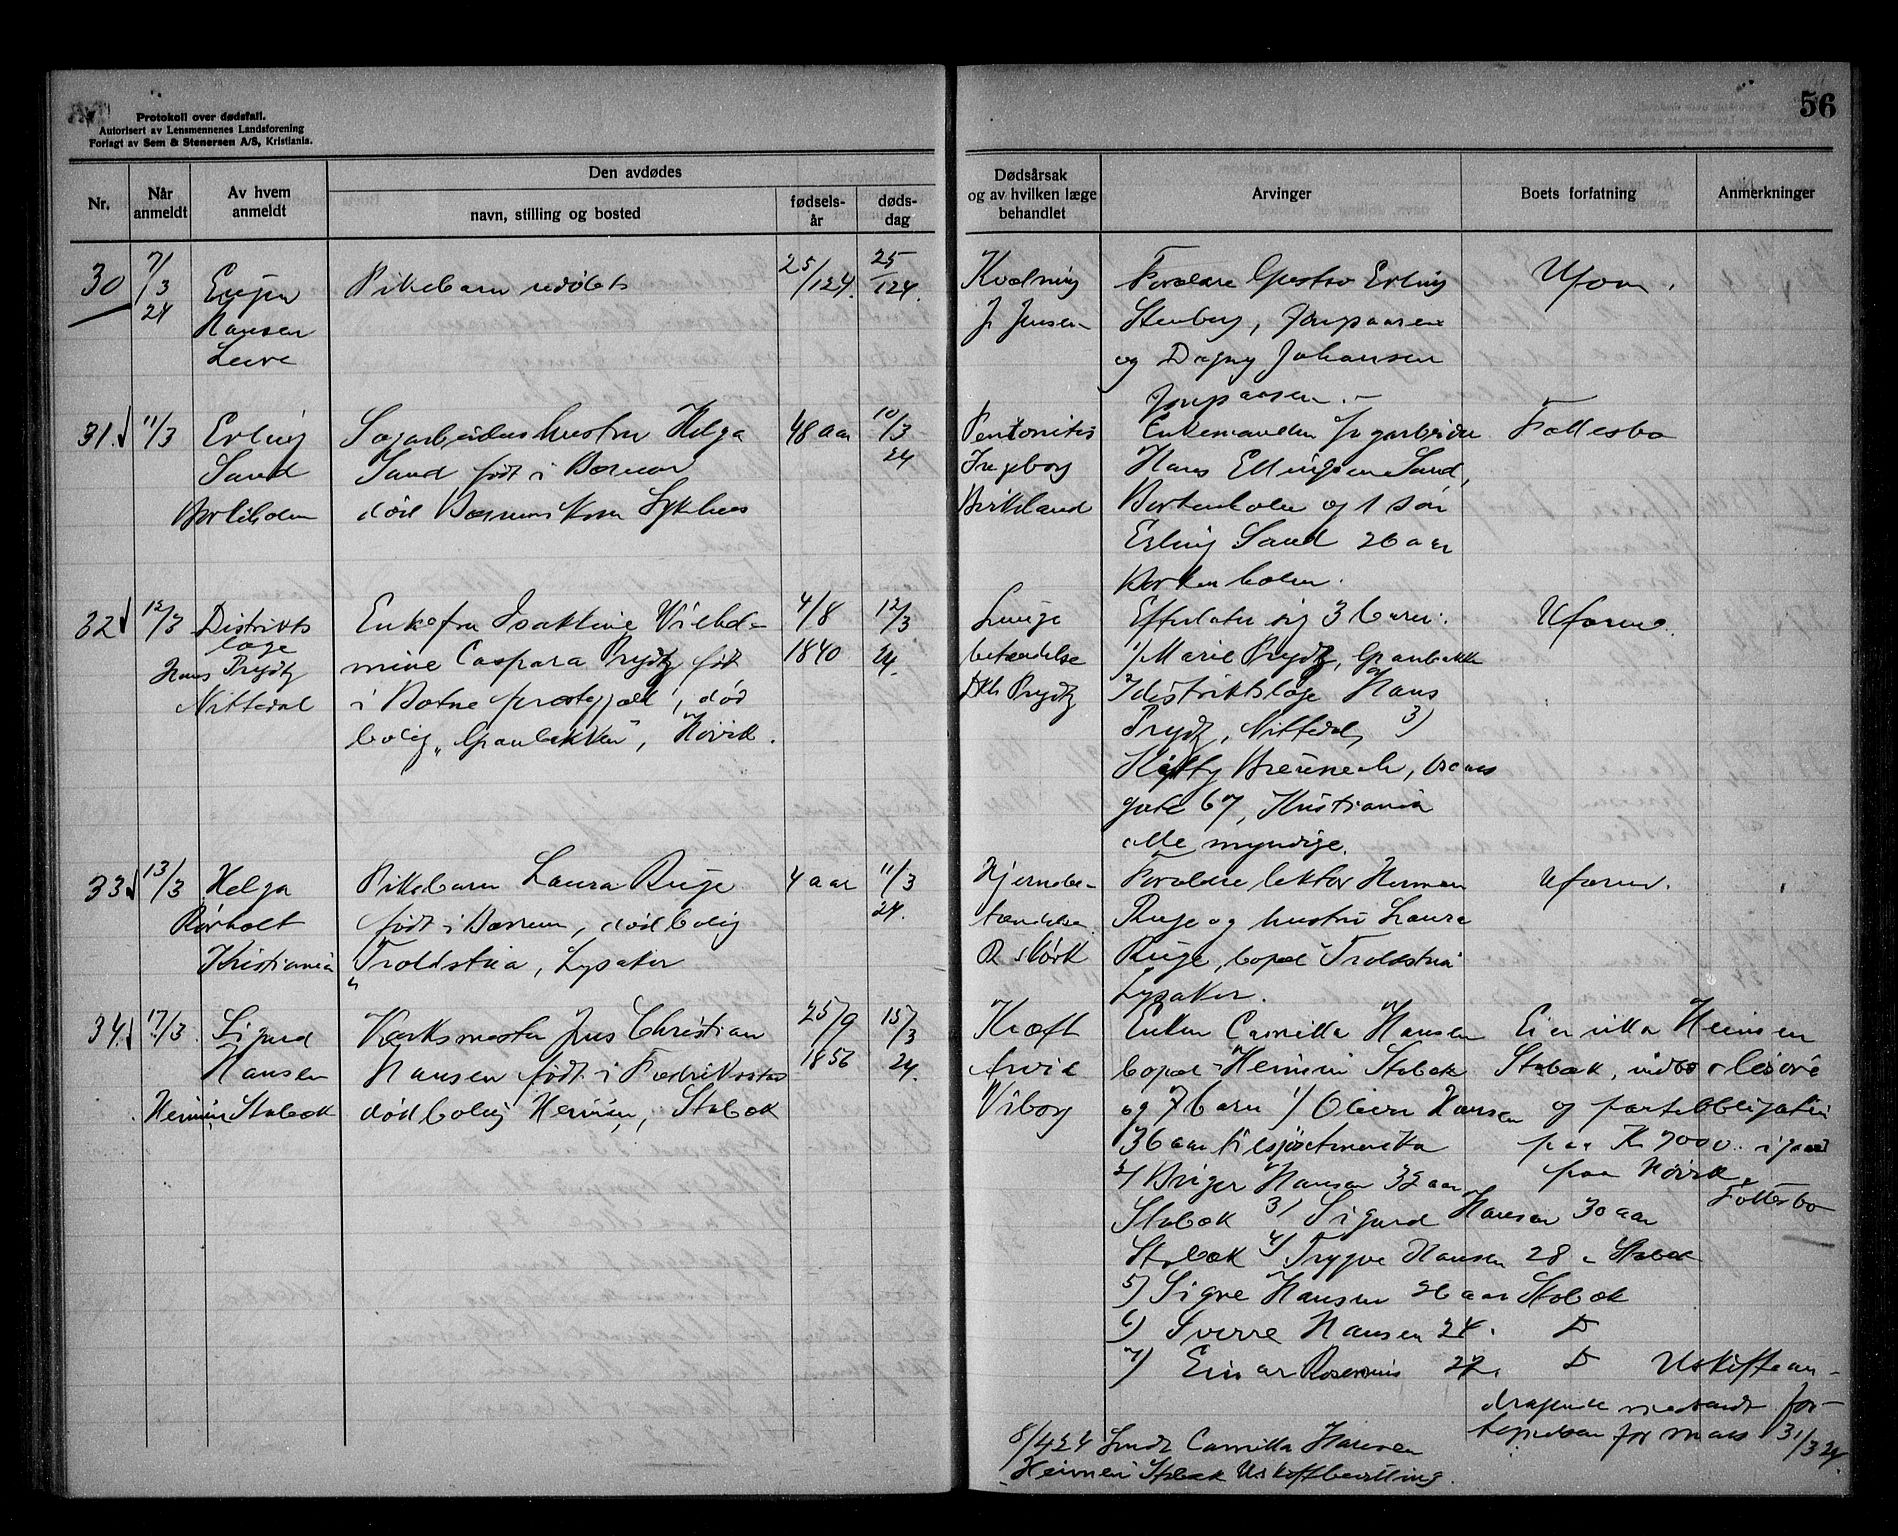 56
Protokoll over dødsfall.
Autorisert av Lensmennenes Landsforening
Forlagt av Sem & Stenersen A/S, Kristiania.
Nr.
Når anmeldt
Av hvem anmeldt
Den avdødes
navn, stilling og bosted
fødsels-år
døds-dag
Dødsårsak og av hvilken læge behandlet
Arvinger
Boets forfatning
Anmerkninger
30
7/3 24
Hansen
Pikebarn udøbt
25/1 24.
25/1 24.
Kvælning
J. Jensen
Forældre Gustav Erling
Stenberg,
og Dagny Johansen
31.
11/3
Erling
Sand
Sagarbeiderhustru Helga
Sand født i Bærum
død Bærums Kom Sykehus
48 aar
10/3 24
Ingeborg
Birkeland
Enkemanden Sagarbeider
Hans Ellingsen Sand,
og 1 søn
Erling Sand 26 aar
Fællesbo
32
12/3
Distrikts
læge
Hans Prydz
Nittedal
Enkefru Isaktine Vilhel-
mine Caspara Prydz født
i Botne præstegjæld, død
bolig "Granbakken", Høvik.
4/8
1840
12/3
24.
Lunge
betændelse
Prydz
Efterlater sig 3 barn:
1) Marie Prydz, Granbakken
2) distriktslæge Hans
Prydz, Nittedal, 3)
gate 67, Kristiania
alle myndige.
Uformu.
33
13/3
Helga
Rørholt
Kristiania
Pikebarn Laura Ruge
født i Bærum, død bolig
"Troldstua, Lysaker
4 aar
11/3
24.
Hjernebe-
tændelse.
R Mørk
Forældre lektor Herman
Ruge og hustru Laura
Ruge, bopæl Troldstua
Lysaker.
Uformu.
34.
17/3.
Sigurd
Hansen
Heimen Stabæk
Værksmester Jens Christian
Hansen født i Fredrikstad
død bolig Heimen, Stabæk
25/9
1856
15/3
24.
Kræft
Arvid
Viborg
Enken Camilla Hansen
bopæl Heimen Stabæk
og 7 barn 1) Oliver Hansen
36 aar tilsjøs Amerika
2) Birger Hansen 32 aar
Stabæk 3) Sigurd Hansen 30 aar
Stabæk 4) Trygve Hansen 28 " Stabæk
5) Signe Hansen 26 aar Stabæk
6) Sverre Hansen 24. D
7) Einar Rosenius 22. D
Eier villa Heimen
Stabæk, indbo løsøre
og pantobligation
paa Kr 7000.
paa Høvik
Fællesbo
Uskiftean-
dragende
31/3 24.
8/4 24 Sendt Camilla Hansen
Heimen Stabæk Uskiftbevilling.